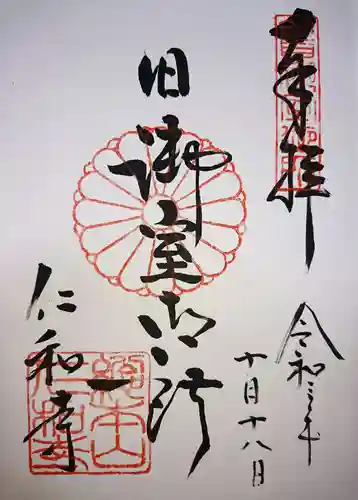 奉拝
令和三年
十月十八日
旧御室御所
仁和寺
總本山
仁和寺